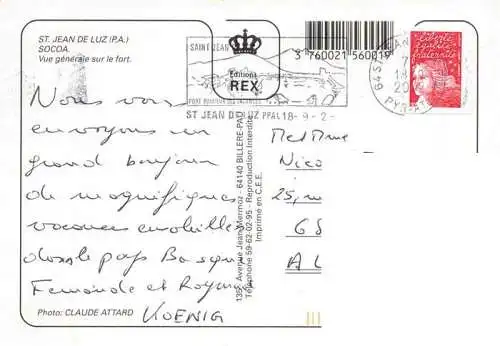 ST. JEAN DE LUZ (P.A.)
SOCOA.
Vue générale sur le fort.
SAINT JEAN
Editions
REX
ST JEAN DE LUZ PPAL 18-9-2-
3 760021 560019
liberté
égalité
fraternité
Nous vous
envoyons un
grand bonjour
de magnifiques
vacances ensoleillées
dans le pays Basque
Fernande et Raymond
KOENIG
Photo: CLAUDE ATTARD
Avenue Jean Mermoz - 64140 BILLERE-PAU
Téléphone 59-62-02-95 - Reproduction Interdite
Imprimé en C.E.E.
Met Mme
Nico
25, 
68
AL